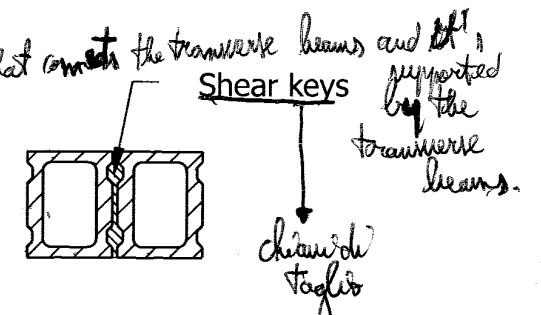 the transverse beams and it's
supported
by the
transverse
beams.
Shear keys
chiavi di
taglio